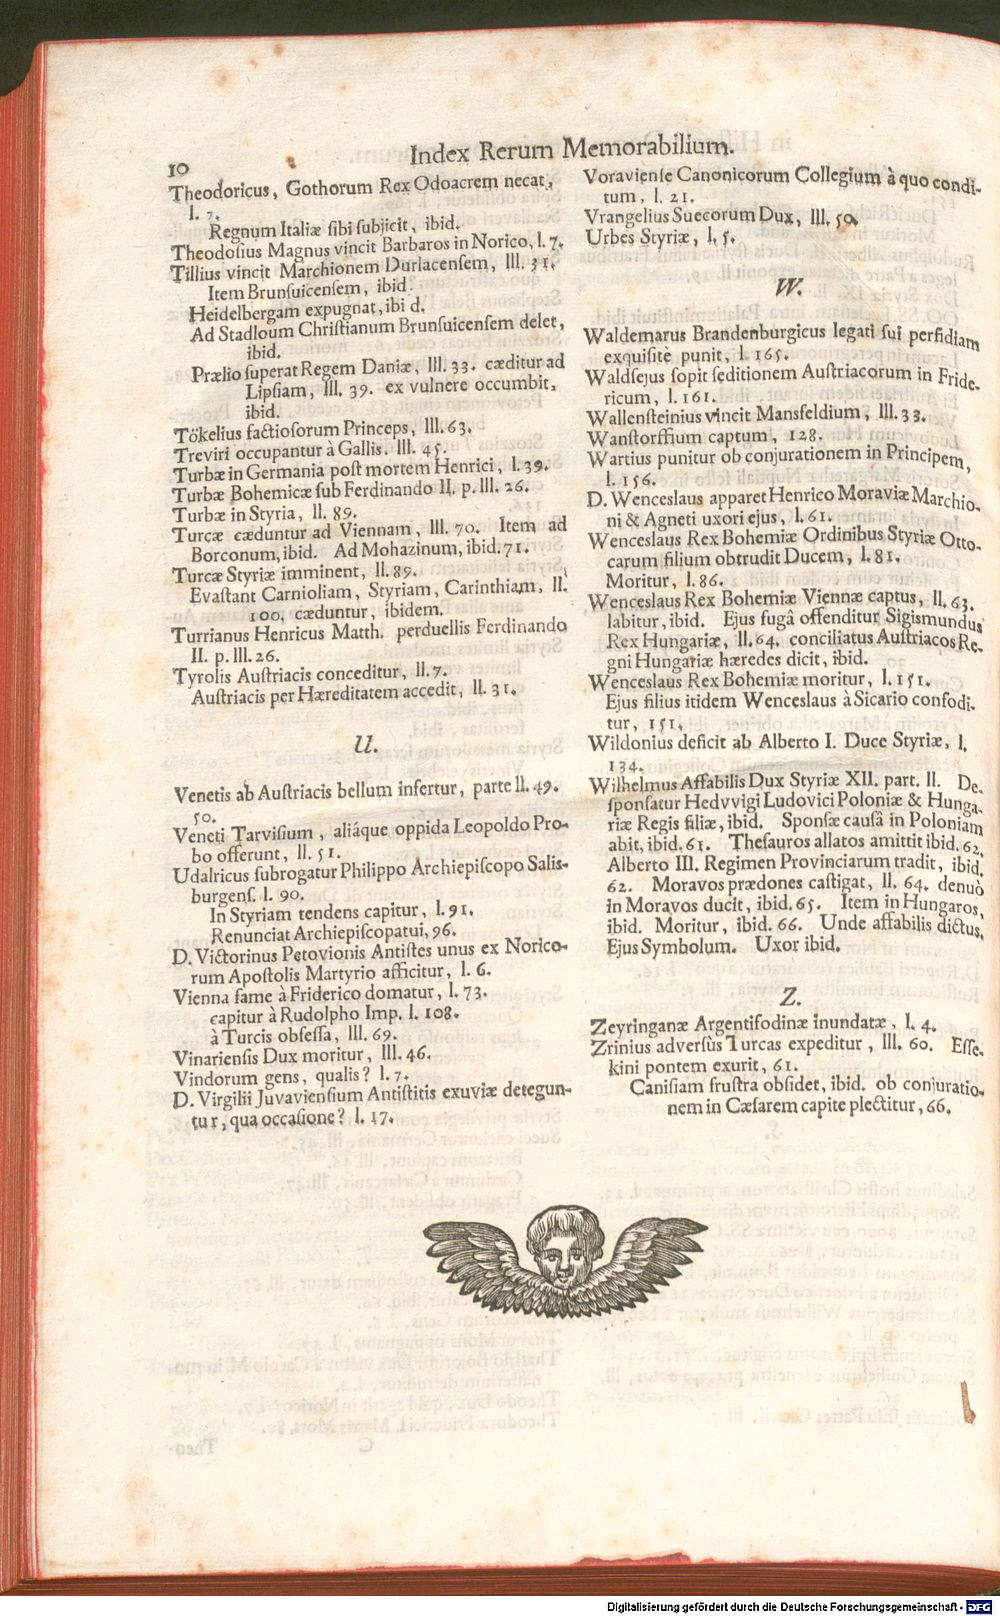 10
Index Rerum Memorabilium.
Theodoricus, Gothorum Rex Odoacrem necat,
I. 7.
Regnum Italiæ sibi subjicit, ibid.
Theodosius Magnus vincit Barbaros in Norico, I. 7.
Tillius vincit Marchionem Durlacensem, III. 31.
Item Brunsuicensem, ibid.
Heidelbergam expugnat, ibi d.
Ad Stadloum Christianum Brunsuicensem delet,
ibid.
Prælio superat Regem Daniæ, III. 33. cæditur ad
Lipsiam, III. 39. ex vulnere occumbit,
ibid.
Tökelius factiosorum Princeps, III. 63.
Treviri occupantur à Gallis. III. 45.
Turbæ in Germania post mortem Henrici, I. 39.
Turbæ Bohemicæ sub Ferdinando II. p. III. 26.
Turbæ in Styria, II. 89.
Turcæ cæduntur ad Viennam, III. 70. Item ad
Borconum, ibid. Ad Mohazinum, ibid. 71.
Turcæ Styriæ imminent, II. 89.
Evastant Carnioliam, Styriam, Carinthiam, II.
100. cæduntur, ibidem.
Turrianus Henricus Matth. perduellis Ferdinando
II. p. III. 26.
Tyrolis Austriacis conceditur, II. 7.
Austriacis per Hæreditatem accedit, II. 31.
U.
Venetis ab Austriacis bellum infertur, parte II. 49.
50.
Veneti Tarvisium, aliáque oppida Leopoldo Pro-
bo offerunt, II. 51.
Udalricus subrogatur Philippo Archiepiscopo Salis-
burgens. I. 90.
In Styriam tendens capitur, I. 91.
Renunciat Archiepiscopatui, 96.
D. Victorinus Petovionis Antistes unus ex Norico-
rum Apostolis Martyrio afficitur, I. 6.
Vienna fame à Friderico domatur, I. 73.
capitur à Rudolpho Imp. I. 108.
à Turcis obsessa, III. 69.
Vinariensis Dux moritur, III. 46.
Vindorum gens, qualis? I. 7.
D. Virgilii Juvaviensium Antistitis exuviæ detegun-
tur, qua occasione? I. 17.
Voraviense Canonicorum Collegium à quo condi-
tum, I. 21.
Vrangelius Suecorum Dux, III. 50.
Urbes Styriæ, I. 5.
W.
Waldemarus Brandenburgicus legati sui perfidiam
exquisitè punit, I. 165.
Waldsejus sopit seditionem Austriacorum in Fride-
ricum, I. 161.
Wallensteinius vincit Mansfeldium, III. 33.
Wanstorffium captum, 128.
Wartius punitur ob conjurationem in Principem,
I. 156.
D. Wenceslaus apparet Henrico Moraviæ Marchio-
ni & Agneti uxori ejus, I. 61.
Wenceslaus Rex Bohemiæ Ordinibus Styriæ Otto-
carum filium obtrudit Ducem, I. 81.
Moritur, I. 86.
Wenceslaus Rex Bohemiæ Viennæ captus, II. 63.
labitur, ibid. Ejus fugâ offenditur Sigismundus
Rex Hungariæ, II. 64. conciliatus Austriacos Re-
gni Hungariæ hæredes dicit, ibid.
Wenceslaus Rex Bohemiæ moritur, I. 151.
Ejus filius itidem Wenceslaus à Sicario confodi-
tur, 151.
Wildonius deficit ab Alberto I. Duce Styriæ, I.
134.
Wilhelmus Affabilis Dux Styriæ XII. part. II. De-
sponsatur Hedvvigi Ludovici Poloniæ & Hunga-
riæ Regis filiæ, ibid. Sponsæ causâ in Poloniam
abit, ibid. 61. Thesauros allatos amittit ibid. 62.
Alberto III. Regimen Provinciarum tradit, ibid.
62. Moravos prædones castigat, II. 64. denuò
in Moravos ducit, ibid. 65. Item in Hungaros,
ibid. Moritur, ibid. 66. Unde affabilis dictus.
Ejus Symbolum. Uxor ibid.
Z.
Zeyringanæ Argentifodinæ inundatæ, I. 4.
Zrinius adversùs Turcas expeditur, III. 60. Esse-
kini pontem exurit, 61.
Canisiam frustra obsidet, ibid. ob conjuratio-
nem in Cæsarem capite plectitur, 66.
Digitalisierung gefördert durch die Deutsche Forschungsgemeinschaft - DFG